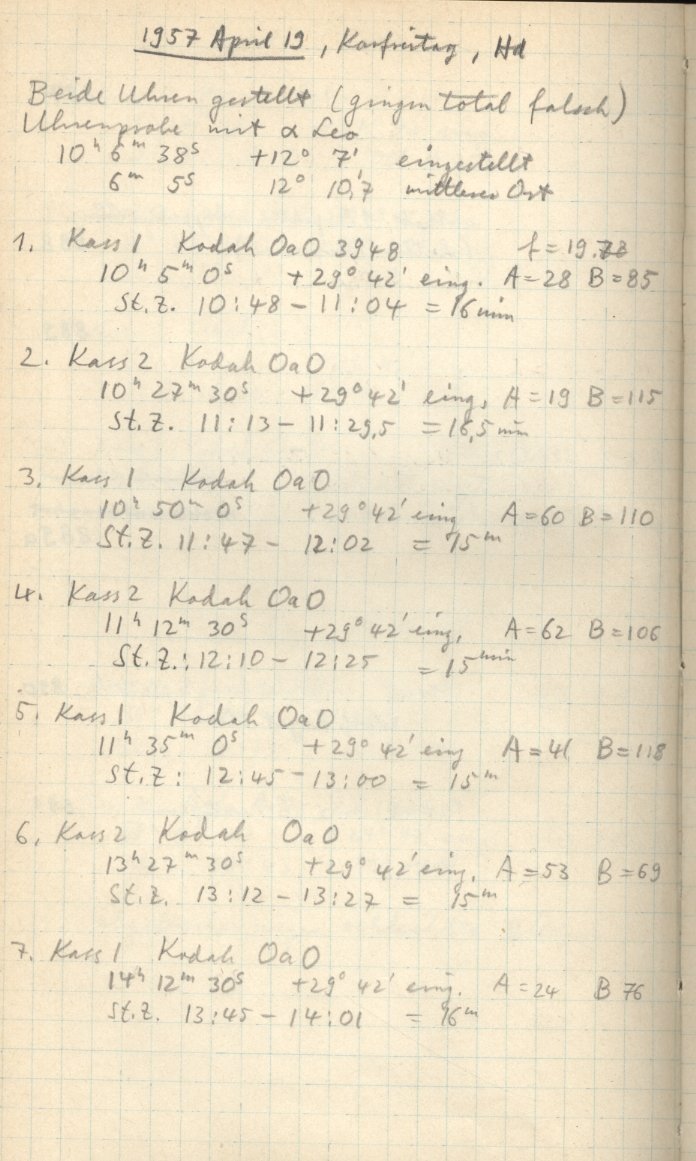 1957 April 19, Karfreitag, Hd
Beide Uhren gestellt (gingen total falsch)
Uhrenprobe mit α Leo
10ʰ 6ᵐ 38ˢ +12° 7' eingestellt
6ᵐ 5ˢ 12° 10,7 mittlerer Ort
1. Kass 1 Kodak OaO 3948 f = 19.
10ʰ 5ᵐ 0ˢ +29° 42' eing. A=28 B=85
St.Z. 10:48 – 11:04 = 16 min
2. Kass 2 Kodak OaO
10ʰ 27ᵐ 30ˢ +29° 42' eing. A=19 B=115
St.Z. 11:13 – 11:29,5 = 16,5 min
3. Kass 1 Kodak OaO
10ʰ 50ᵐ 0ˢ +29° 42' eing A=60 B=110
St.Z. 11:47 – 12:02 = 15ᵐ
4. Kass 2 Kodak OaO
11ʰ 12ᵐ 30ˢ +29° 42' eing. A=62 B=106
St.Z.: 12:10 – 12:25 = 15ᵐⁱⁿ
5. Kass 1 Kodak OaO
11ʰ 35ᵐ 0ˢ +29° 42' eing A=41 B=118
St.Z: 12:45 – 13:00 = 15ᵐ
6. Kass 2 Kodak OaO
13ʰ 27ᵐ 30ˢ +29° 42' eing. A=53 B=69
St.Z. 13:12 – 13:27 = 15ᵐ
7. Kass 1 Kodak OaO
14ʰ 12ᵐ 30ˢ +29° 42' eing. A=24 B 76
St.Z. 13:45 – 14:01 = 16ᵐ